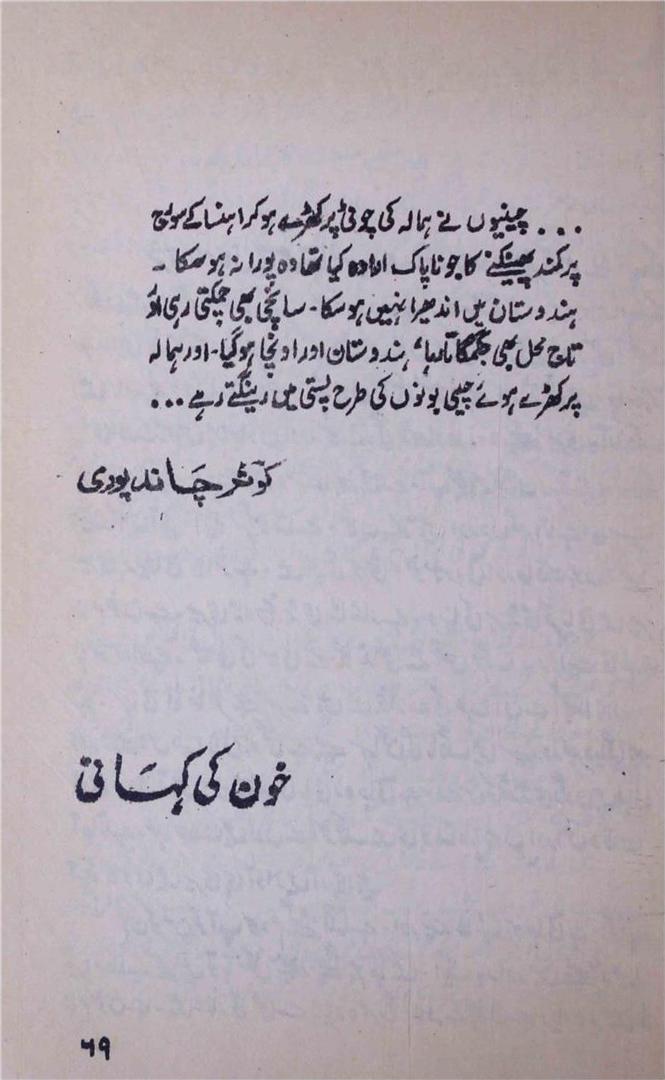 ... چینیوں نے ہمالہ کی چوٹی پر کھڑے ہو کر اہنسا کے سورج
پر کمند پھینکنے کا جو ناپاک ارادہ کیا تھا وہ پورا نہ ہو سکا ۔
ہندوستان میں اندھیرا نہیں ہو سکا ۔ سانچی بھی چمکتی رہی اور
تاج محل بھی جگمگاتا رہا، ہندوستان اور اونچا ہو گیا ۔ اور ہمالہ
پر کھڑے ہوئے چینی بونوں کی طرح پستی میں رینگتے رہے ...
کوثر چاند پوری
خون کی کہانی
۶۹